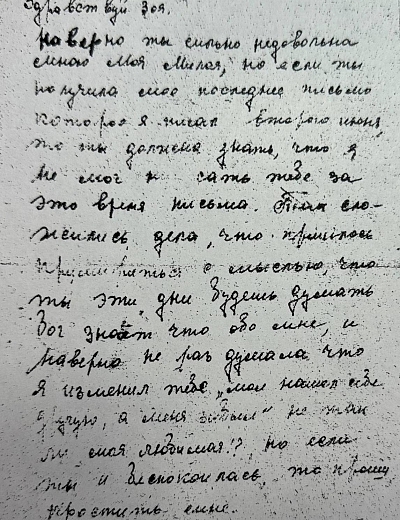 Здравствуй Зоя.
Наверно ты сильно недовольна
мною Моя Милая, но если ты
получила мое последнее письмо
которое я писал второго июня,
то ты должна знать, что я
не мог писать тебе за
это время письма. Так сло-
жились дела, что пришлось
примириться с мыслью, что
ты эти дни будешь думать
бог знает что обо мне, и
наверно не раз думала что
я изменил тебе „мол нашел себе
другую, а меня забыл" не так
ли моя любимая!? но если
ты и беспокоилась то прошу
простить мне.